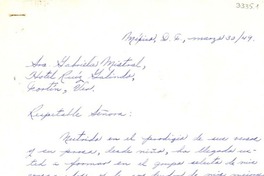 33351
México, D. F., marzo 30/49.
Sra. Gabriela Mistral,
Hotel Ruiz Galindo,
Fortín, Ver.
Respetable Señora:
Nutrida en el prodigio de sus versos
y su prosa, desde niña, ha llegado us-
ted a formar en el grupo selecto de mis